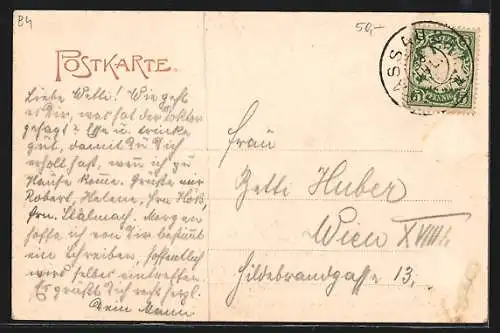 B4
50,-
POSTKARTE.
PASSAU
5 PFENNIG 5
Liebe Betti! Wie geht
es Dir, was hat der Doktor
gesagt? Esse u. trinke
gut, damit Du Dich
erholt hast, wenn ich zu
Hause komme. Grüße mir
Robert, Helene, Frau
Frn. Morgen
hoffe ich von Dir bestimmt
ein Schreiben, hoffentlich
wird selbes eintreffen.
Es grüßt Dich recht herzl.
Dein Mann
Frau
Betti Huber
Wien XVIII/1.
Hildebrandgasse 13.